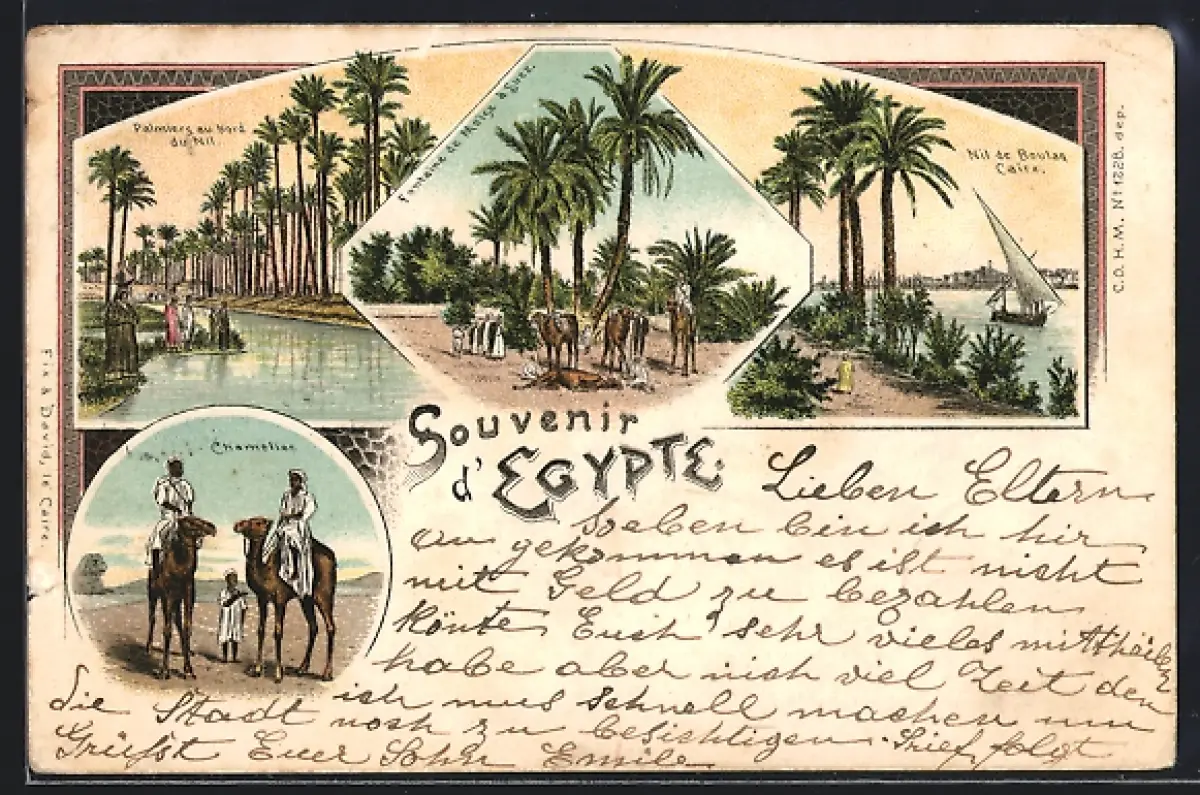 Palmiers au bord
du Nil.
Fontaine de Moïse à Suez.
Nil de Boulaq
Caire.
C.D.H.W. No 1228. dep.
Fix & David, le Caire.
Chamelier
Souvenir
d'EGYPTE.
Lieben Eltern
Soeben bin ich hir
an gekommen es ist nicht
mit Geld zu bezahlen
könte Euch sehr vieles mittheilen
habe aber nich viel Zeit den
ich mus schnell machen um
die Stadt noch zu besichtigen. Brief folgt
Grüsst Euer Sohn Emile